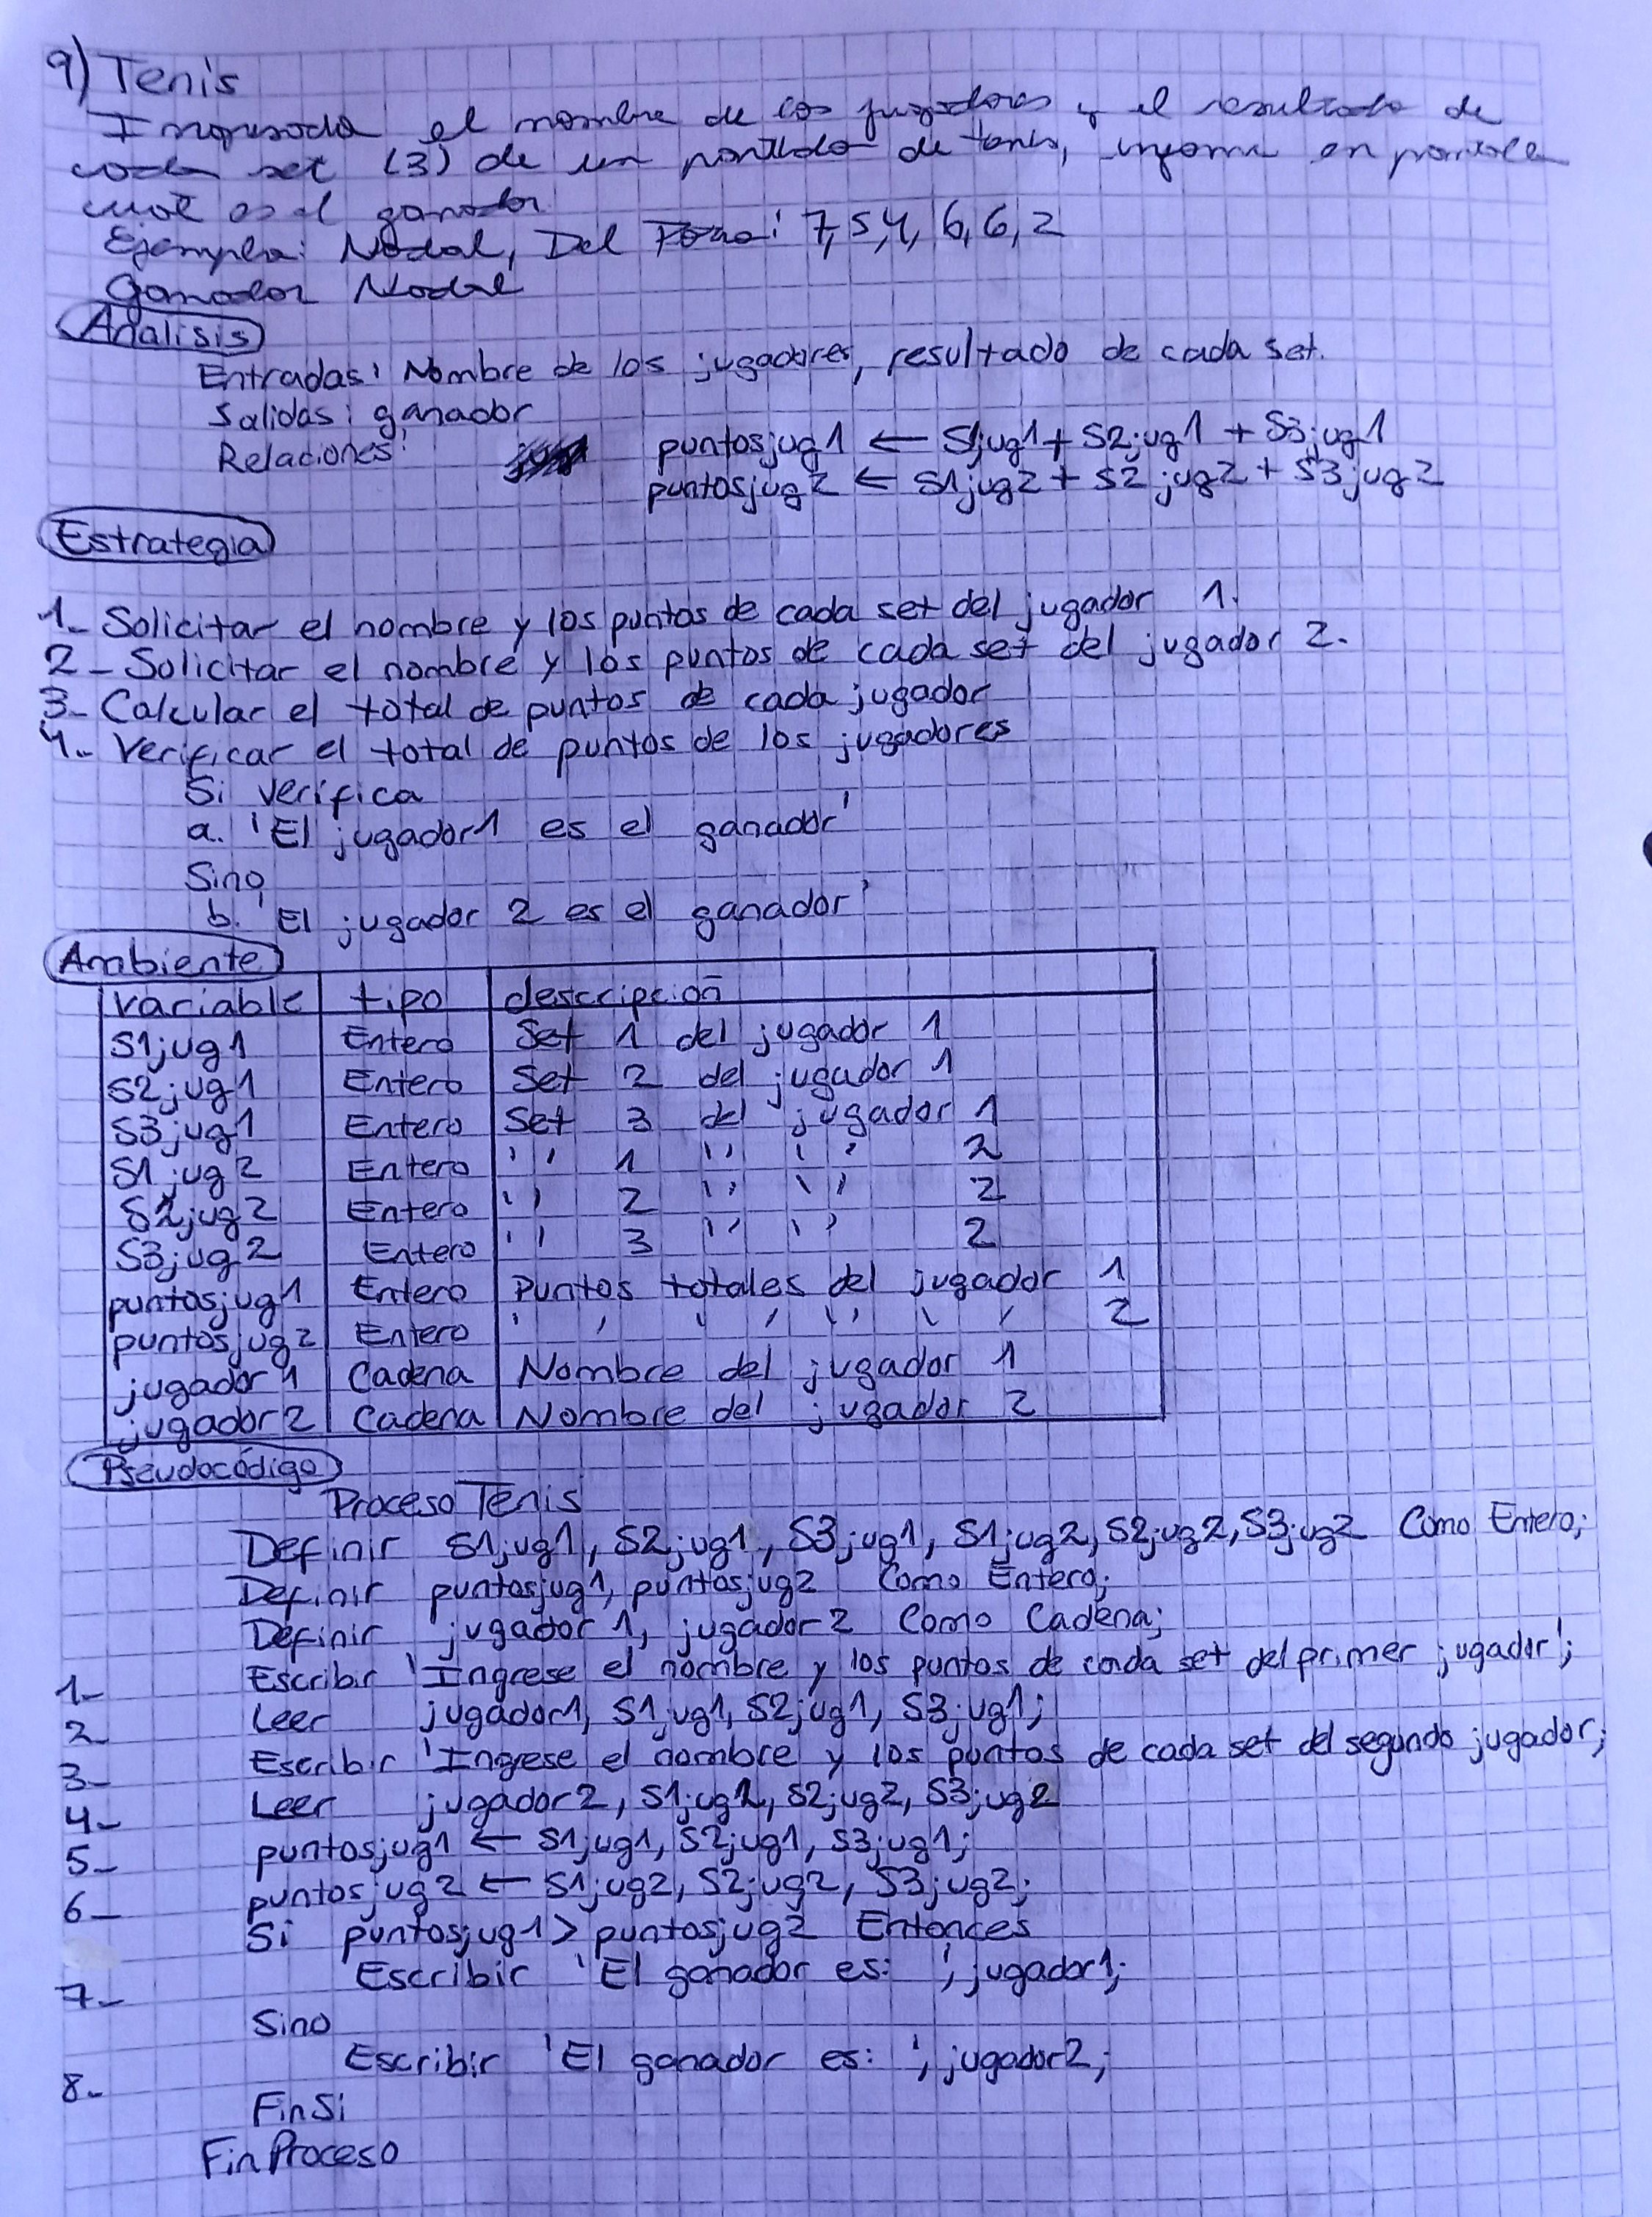 9) Tenis
Ingresado el nombre de los jugadores y el resultado de
cada set (3) de un partido de tenis, informe en pantalla
cual es el ganador
Ejemplo: Nadal, Del Potro: 7,5,4,6,6,2
Ganador Nadal
Analisis
Entradas: Nombre de los jugadores, resultado de cada set.
Salidas: ganador
Relaciones: puntosjug1 ← S1jug1 + S2jug1 + S3jug1
puntosjug2 ← S1jug2 + S2jug2 + S3jug2
Estrategia
1- Solicitar el nombre y los puntos de cada set del jugador 1.
2- Solicitar el nombre y los puntos de cada set del jugador 2.
3- Calcular el total de puntos de cada jugador
4- Verificar el total de puntos de los jugadores
Si verifica
a. 'El jugador1 es el ganador'
Sino
b. 'El jugador 2 es el ganador'
Ambiente
variable tipo descripción
S1jug1 Entero Set 1 del jugador 1
S2jug1 Entero Set 2 del jugador 1
S3jug1 Entero Set 3 del jugador 1
S1jug2 Entero '' 1 '' '' 2
S2jug2 Entero '' 2 '' '' 2
S3jug2 Entero '' 3 '' '' 2
puntosjug1 Entero Puntos totales del jugador 1
puntosjug2 Entero ' ' ' ' '' ' ' 2
jugador1 Cadena Nombre del jugador 1
jugador2 Cadena Nombre del jugador 2
Pseudocódigo
Proceso Tenis
Definir S1jug1, S2jug1, S3jug1, S1jug2, S2jug2, S3jug2 Como Entero;
Definir puntosjug1, puntosjug2 Como Entero;
Definir jugador1, jugador2 Como Cadena;
1- Escribir 'Ingrese el nombre y los puntos de cada set del primer jugador';
2- Leer jugador1, S1jug1, S2jug1, S3jug1;
3- Escribir 'Ingrese el nombre y los puntos de cada set del segundo jugador;
4- Leer jugador2, S1jug2, S2jug2, S3jug2
5- puntosjug1 ← S1jug1, S2jug1, S3jug1;
6- puntosjug2 ← S1jug2, S2jug2, S3jug2;
Si puntosjug1 > puntosjug2 Entonces
7- Escribir 'El ganador es: ', jugador1;
Sino
8- Escribir 'El ganador es: ', jugador2;
FinSi
FinProceso